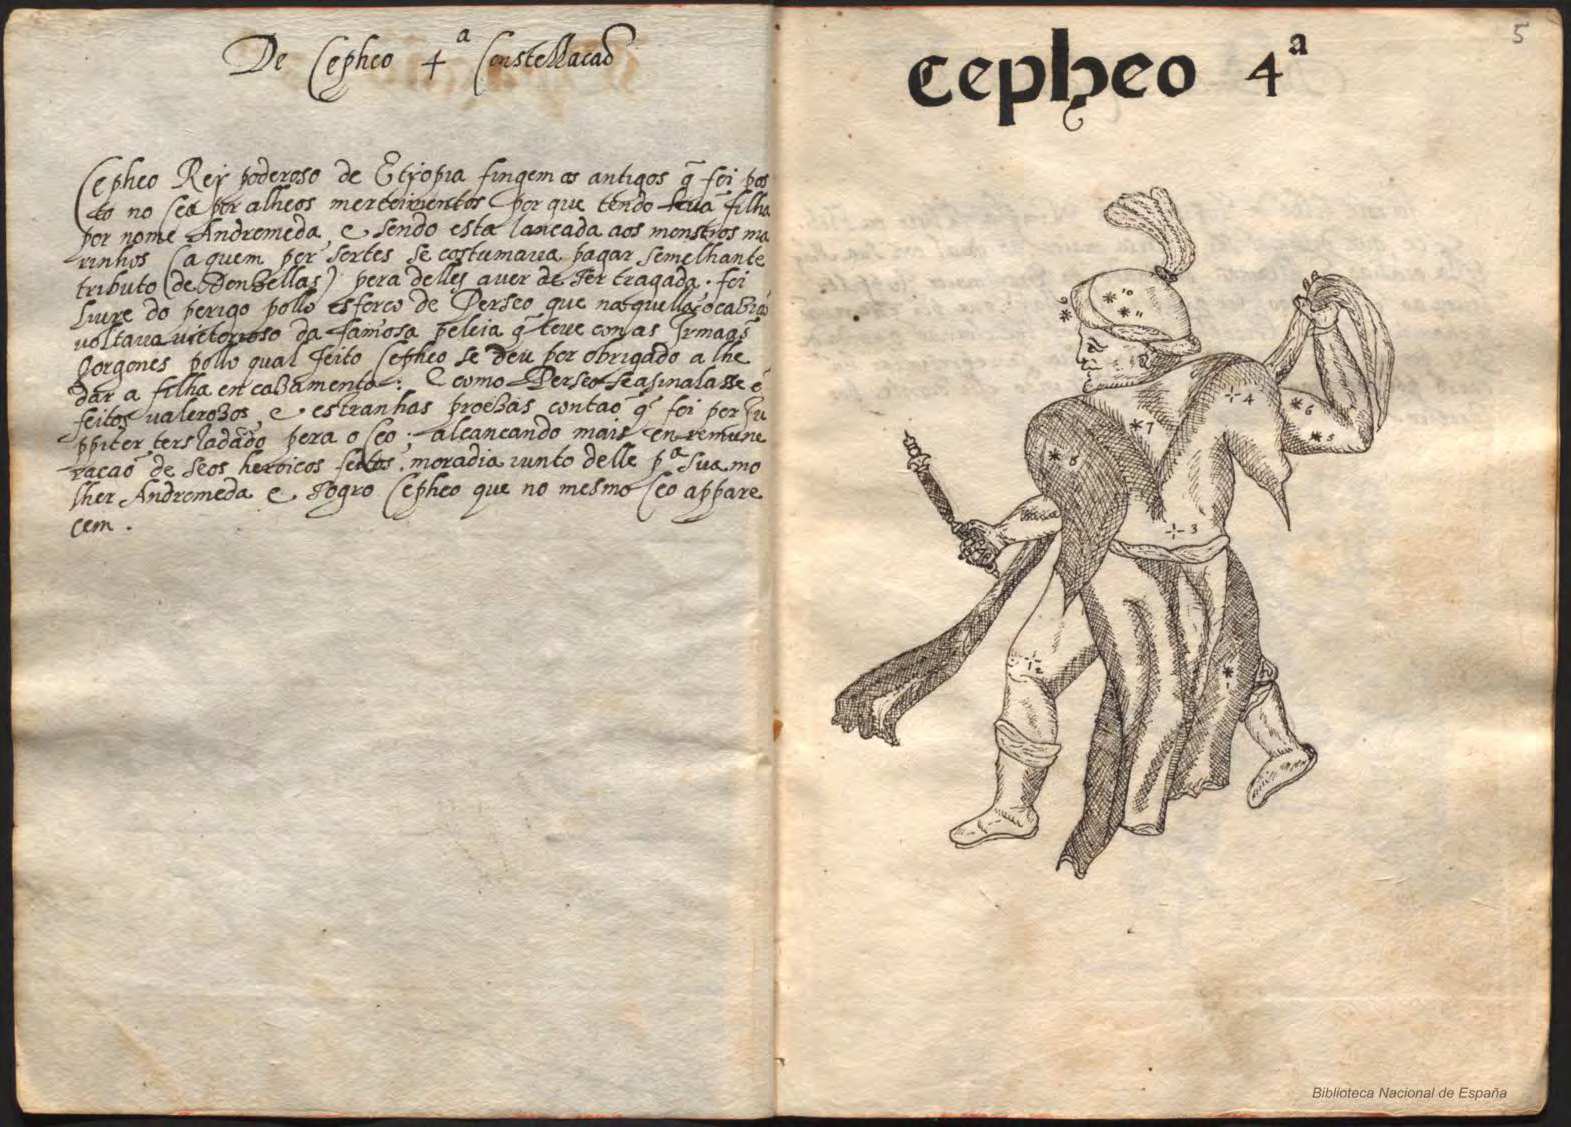 De Cepheo 4ª Constellacaõ
Cepheo Rey poderoso de Etyopia fingem os antigos q̃ foi pos
to no Ceo por alheos mereciméntos por que tendo huã filha
por nome Andromeda, e sendo esta lancada aos monstros ma
rinhos (a quem per sortes se costumava pagar semelhante
tributo (de Donzellas) pera delles aver de ser tragada. foi
livre do perigo pollo esforco de Perseo que naquella
voltava victorioso da famosa peleia q̃ teve con as Irmaãs
Gorgones pollo qual feito Cepheo se deu por obrigado a lhe
dar a filha en cazamento: E como Perseo se asinalasse ẽ
feitos valerozos, e estranhas proezas contaõ q̃ foi por Iu
ppiter tersladado pera o Ceo; alcancando mais en remune
racaõ de seos heroicos feitos, moradia iunto delle pª sua mo
lher Andromeda e sogro Cepheo que no mesmo Ceo appare
cem.
5
Cepheo 4ª
10
11
4
6
5
7
8
3
12
1
Biblioteca Nacional de España